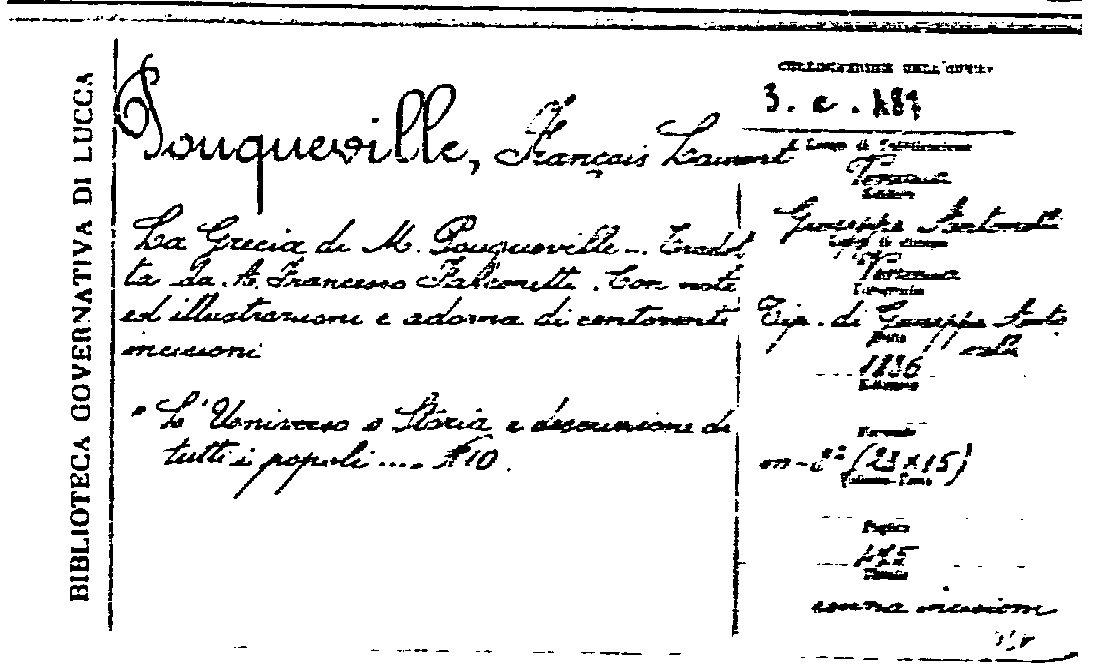 BIBLIOTECA GOVERNATIVA DI LUCCA
Pouqueville, François Laurent
La Grecia di M. Pouqueville - Tradot
ta da A. Francesco Falconetti. Con note
ed illustrazioni e adorna di centoventi
incisioni
" L'Universo o Storia e descrizione di
tutti i popoli .... N 10.
COLLOCAZIONE DELL'OPERA
3. e.
Luogo di Pubblicazione
Venezia
Giuseppe Antonelli
Luogo di stampa
Venezia
Tipografia
Tip. di Giuseppe Anto
nelli
1836
Formato
in-8° (23x15)
Pagine
incisioni